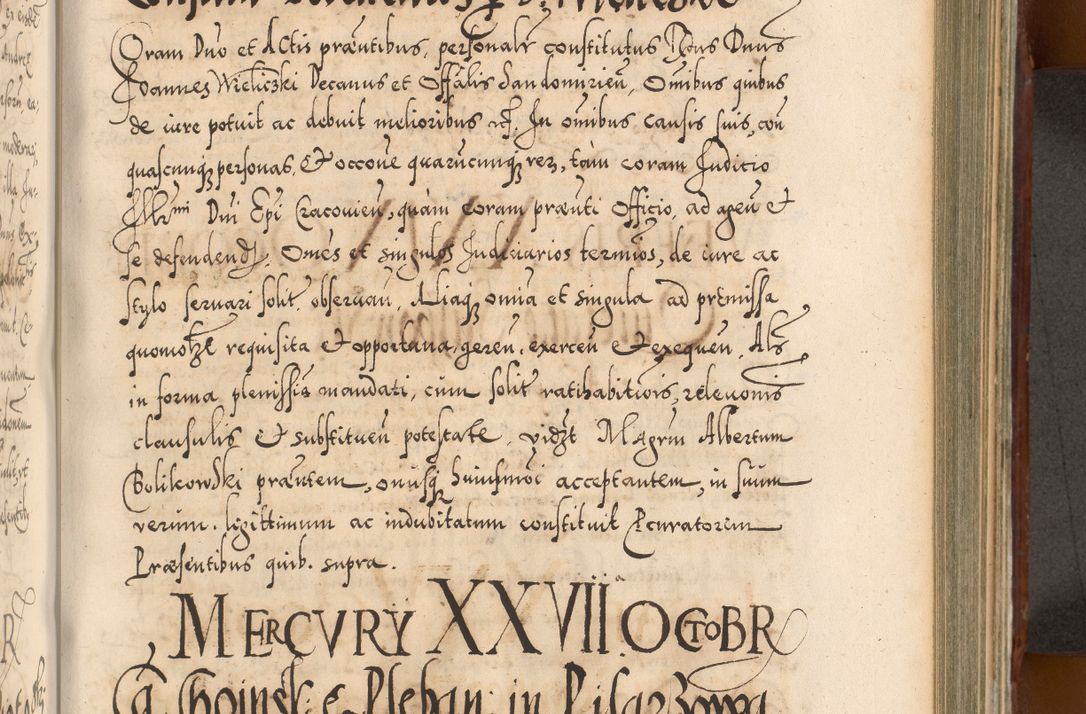 Coram Dno et Actis præntibus, personalr constitutus Nõus Dnus
Joannes Wieliczki Decanus et Offalis Sandomirien, Omibus quibus
de iure potuit ac debuit melioribus etc. In omibus causis suis, con
quascunq personas, Et occone quarucunq rez, tam coram Juditio
Illmi Dni Epi Cracovien, quàm coram prænti Officio, ad agen et
se defendend, Omes et singulos Judiciarios terminos, de iure ac
stylo servari solit, observan, Aliaq omia et singula ad premissa
quomolzt requisita Et opportuna, geren, exercen Et exequen, Als
in forma plenissia mandati, cum solit ratihabitiois, relevonis
clausulis Et substituen potestate, vidzt Magrum Albertum
Golikowski præntem, onusq huiusmoi acceptantem, in suum
verum, legittimum ac indubitatum constituit Pcuratorem
Præsentibus quib. supra.
MERCVRY XXVII OCTOBR
Choinsk Pleban in Pilarzowa